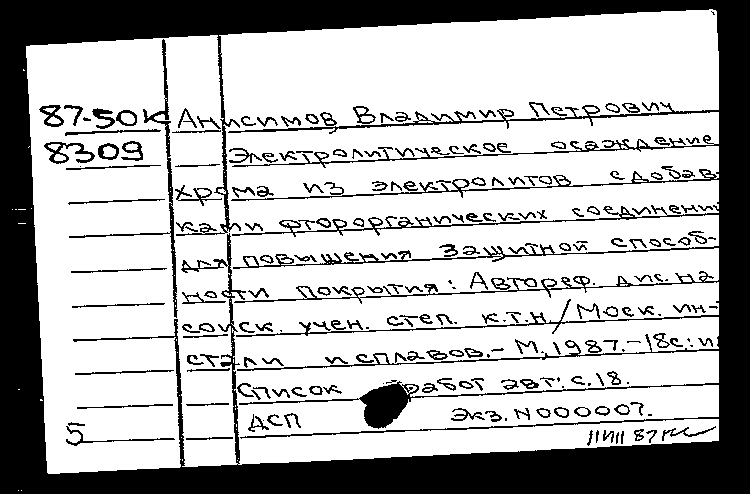 87-50К Анисимов Владимир Петрович
8309 Электролитическое осаждение
хрома из электролитов с добав-
ками фторорганических соединени
для повышения защитной способ-
ности покрытия: Автореф. дис. на
соиск. учен. степ. к.т.н. / Моск. ин-
стали и сплавов. - М., 1987. - 18с: и
Список работ авт: с. 18.
ДСП Экз. N000007.
5